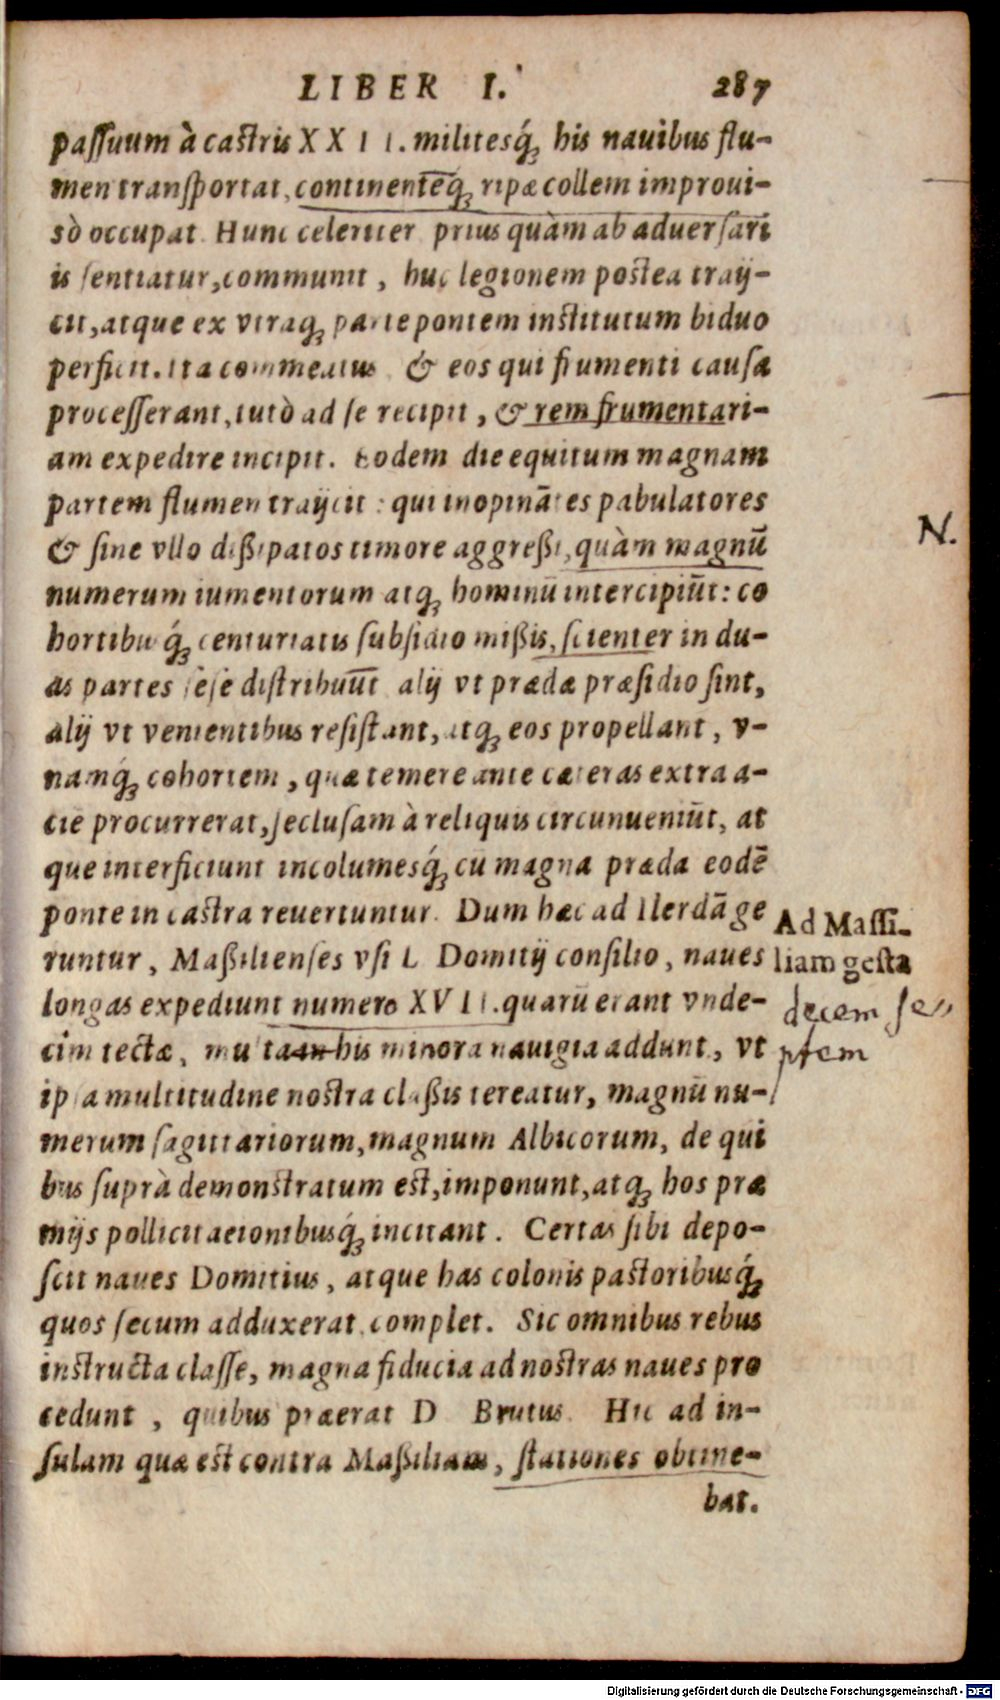 LIBER I. 287
passuum à castris XXII. militesq́ꝫ his nauibus flu-
men transportat, continentēqꝫ ripæ collem improui-
sò occupat. Hunc celeriter prius quàm ab aduersari
is sentiatur, communit, huc legionem postea traij-
cit, atque ex vtraqꝫ parte pontem institutum biduo
perficit. Ita commeatus & eos qui frumenti causa
processerant, tutò ad se recipit, & rem frumentari-
am expedire incipit. Eodem die equitum magnam
partem flumen traijcit: qui inopinātes pabulatores
& sine vllo dißipatos timore aggreßi, quàm magnū
numerum iumentorum atqꝫ hominū intercipiūt: co
hortibusq́ꝫ centuriatis subsidio mißis, scienter in du-
as partes sese distribuūt alij vt prædæ præsidio sint,
alij vt venientibus resistant, atqꝫ eos propellant, v-
namq́ꝫ cohortem, quæ temere ante cæteras extra a-
cie procurrerat, seclusam à reliquis circunueniūt, at
que interficiunt incolumesq́ꝫ cu magna præda eodē
ponte in castra reuertuntur. Dum hæc ad Ilerdā ge
runtur, Maßilienses vsi L Domitij consilio, naues
longas expediunt numero XVII. quarū erant vnde-
cim tectæ, multa his minora nauigia addunt, vt
ipsa multitudine nostra claßis tereatur, magnū nu-
merum sagittariorum, magnum Albicorum, de qui
bus suprà demonstratum est, imponunt, atqꝫ hos præ
mijs pollicitaeionibusq́ꝫ incitant. Certas sibi depo-
scit naues Domitius, atque has colonis pastoribusq́ꝫ
quos secum adduxerat, complet. Sic omnibus rebus
instructa classe, magna fiducia ad nostras naues pro
cedunt, quibus præerat D Brutus. Hic ad in-
sulam quæ est contra Maßiliam, stationes obtine-
bat.
N.
Ad Massi-
liam gesta
decem se„
ptem
Digitalisierung gefördert durch die Deutsche Forschungsgemeinschaft - DFG